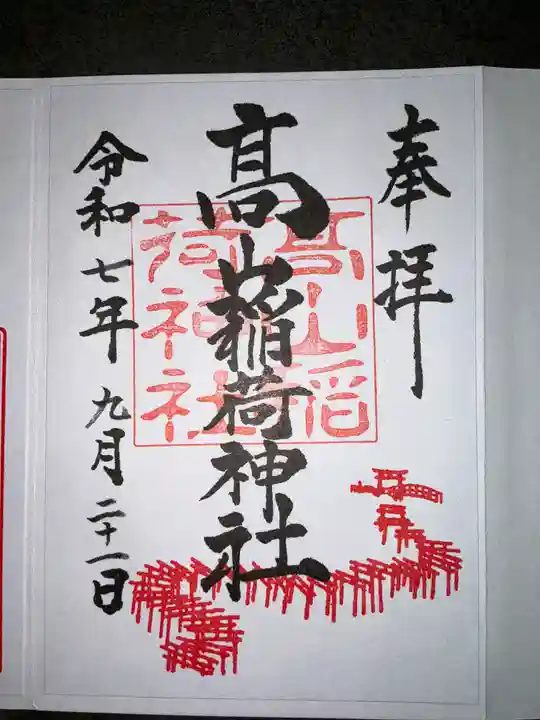 奉拝
髙山稲荷神社
令和七年 九月二十一日
髙山稲
荷神社